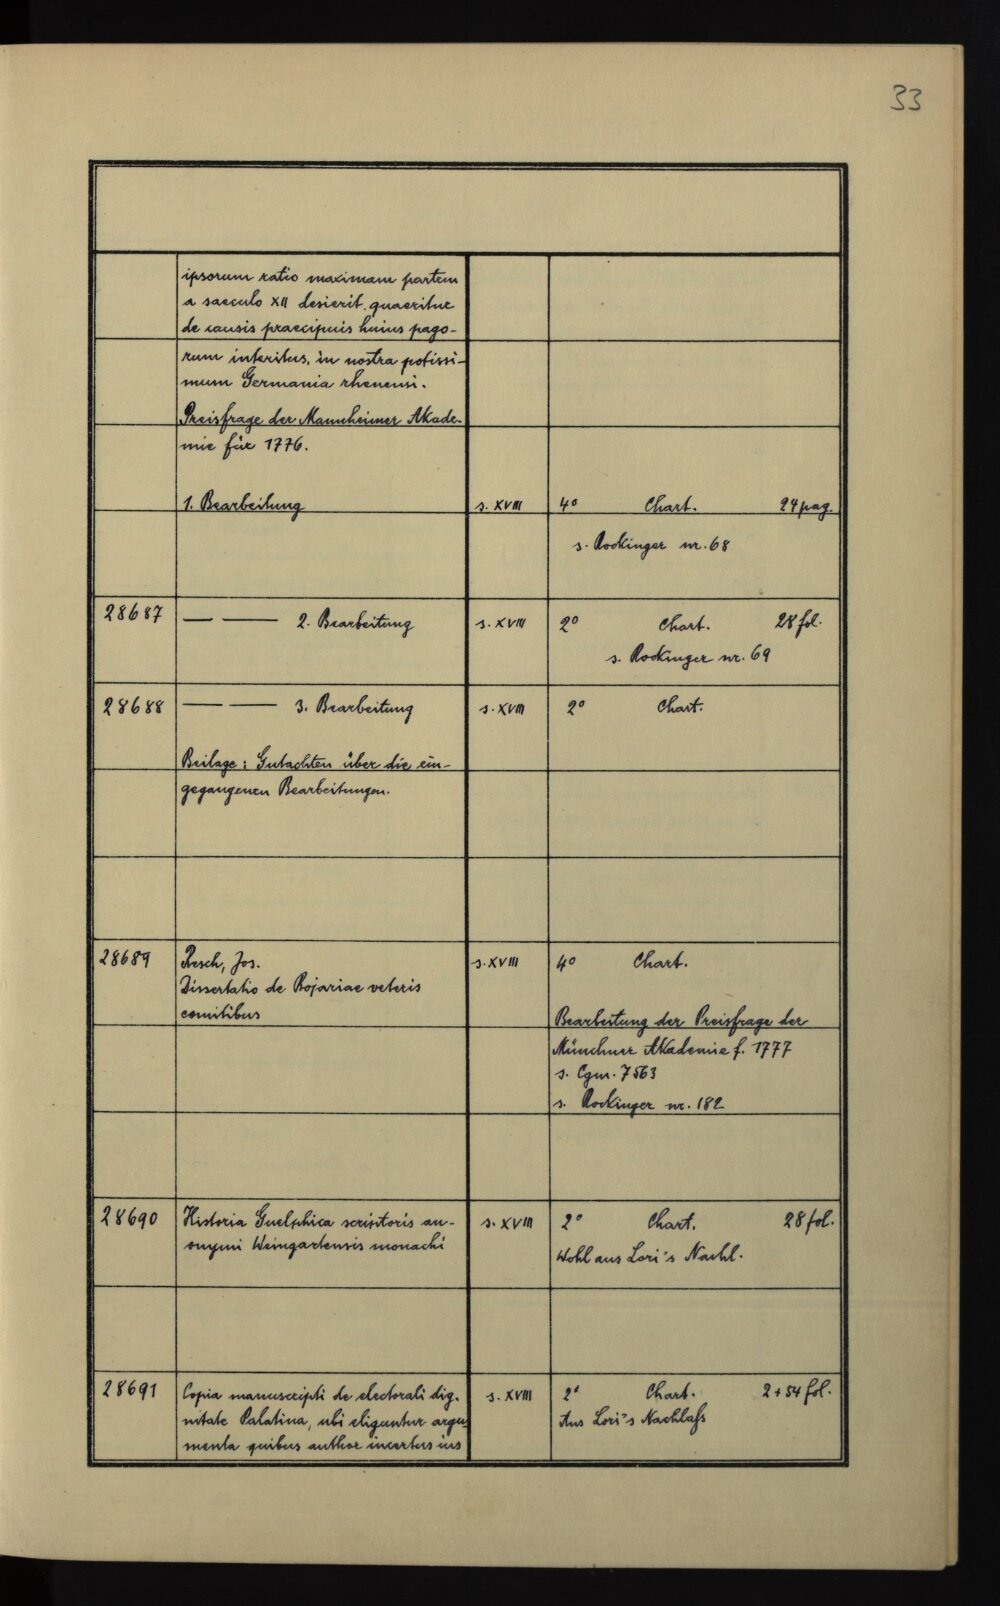 33
ipsorum ratio maximam partem
a saeculo XII desierit. quaeritur
de causis praecipuis huius pago-
rum interitus, in nostra potissi-
mum Germania rhenensi.
Preisfrage der Mannheimer Akade-
mie für 1776.
1. Bearbeitung s. XVIII 4° Chart. 24 pag.
s. Rockinger nr. 68
28687 — — 2. Bearbeitung s. XVIII 2° Chart. 28 fol.
s. Rockinger nr. 69
28688 — — 3. Bearbeitung s. XVIII 2° Chart.
Beilage: Gutachten über die ein-
gegangenen Bearbeitungen.
28689 Resch, Jos. s. XVIII 4° Chart.
Dissertatio de Bojariae veteris
comitibus
Bearbeitung der Preisfrage der
Münchner Akademie f. 1777
s. Cgm. 7563
s. Rockinger nr. 182
28690 Historia Guelphica scriptoris an- s. XVIII 2° Chart. 28 fol.
onymi Weingartensis monachi
Wohl aus Lori's Nachl.
28691 Copia manuscripti de electorali dig- s. XVIII 2° Chart. 2 + 54 fol.
nitate Palatina, ubi eliguntur argu-
Aus Lori's Nachlaß
menta quibus author incertus ius